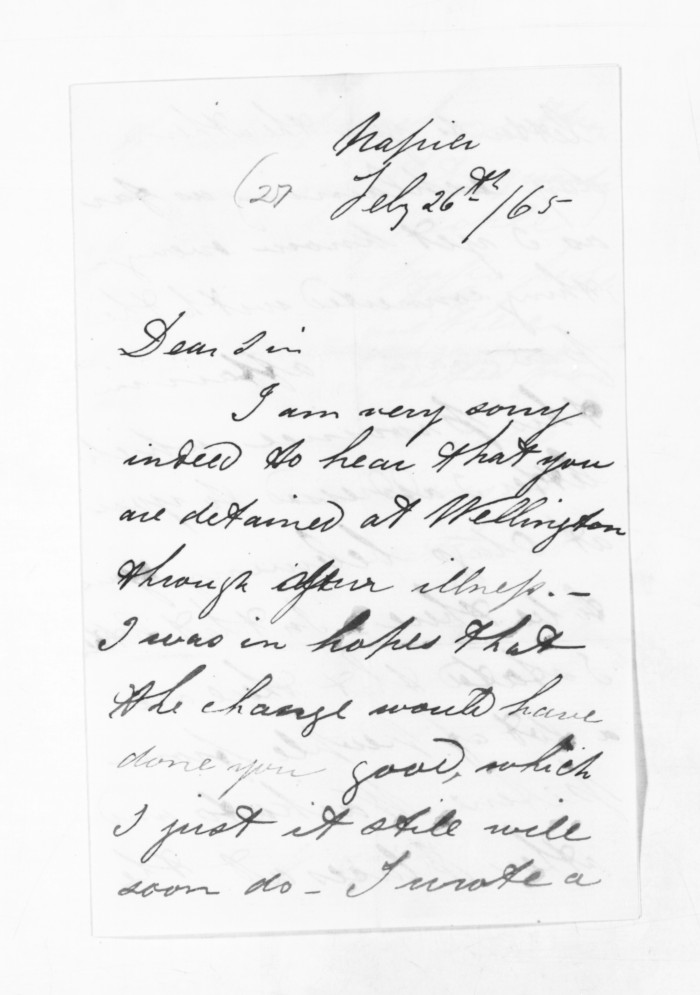 Napier
(27
Feby 26th/65
Dear Sir
I am very sorry
indeed to hear that you
are detained at Wellington
through illness. –
I was in hopes that
the change would have
done you good, which
I just it still will
soon do – I wrote a